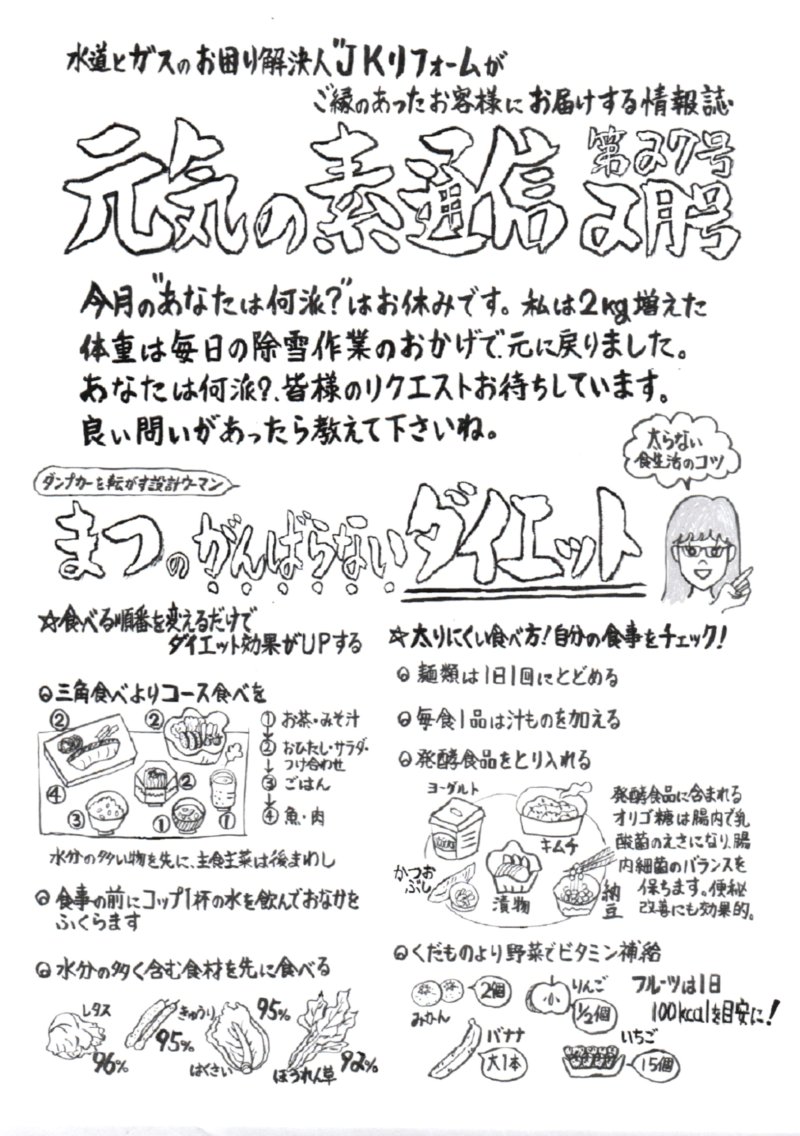 水道とガスのお困り解決人"JKリフォームが
ご縁のあったお客様にお届けする情報誌
元気の素通信
第27号
2月号
今月の"あなたは何派?"はお休みです。私は2kg増えた
体重は毎日の除雪作業のおかげで、元に戻りました。
あなたは何派?、皆様のリクエストお待ちしています。
良い問いがあったら教えて下さいね。
太らない
食生活のコツ
ダンプカーを転がす設計ウーマン
まつのがんばらないダイエット
☆食べる順番を変えるだけで
ダイエット効果がUPする
三角食べよりコース食べを
② ② ④ ② ③ ① ①
① お茶・みそ汁
↓
② おひたし・サラダ・
つけ合わせ
↓
③ ごはん
↓
④ 魚・肉
水分の多い物を先に、主食主菜は後まわし
食事の前にコップ1杯の水を飲んでおなかを
ふくらます
水分の多く含む食材を先に食べる
レタス
96%
きゅうり
95%
はくさい
95%
ほうれん草
92%
☆太りにくい食べ方!自分の食事をチェック!
麺類は1日1回にとどめる
毎食1品は汁ものを加える
発酵食品をとり入れる
ヨーグルト
キムチ
かつお
ぶし
漬物
納豆
発酵食品に含まれる
オリゴ糖は腸内で乳
酸菌のえさになり、腸
内細菌のバランスを
保ちます。便秘
改善にも効果的。
くだものより野菜でビタミン補給
みかん
2個
りんご
1/2個
フルーツは1日
100kcalを目安に!
バナナ
大1本
いちご
15個